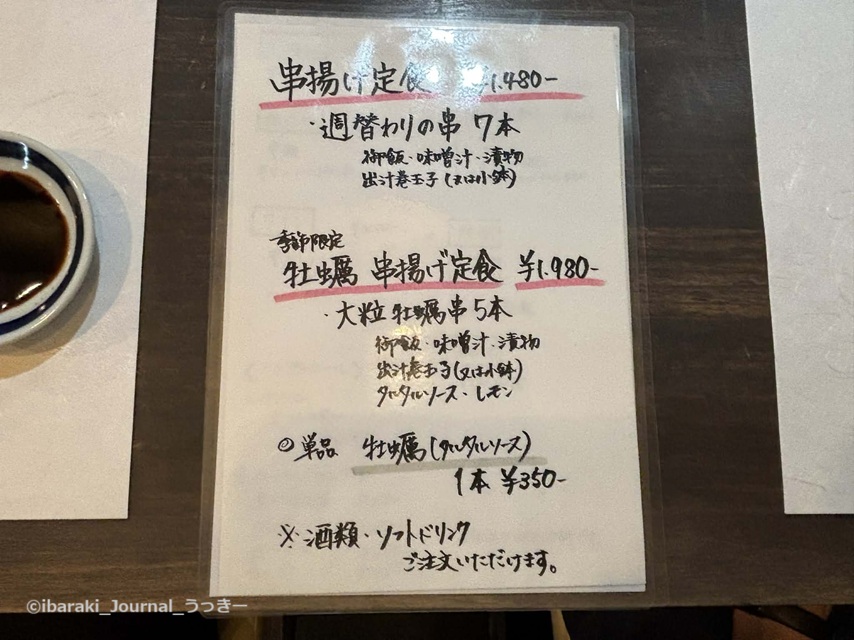 串揚げ定食 ¥1,480-
・週替わりの串 7本
御飯・味噌汁・漬物
出汁巻玉子(又は小鉢)
季節限定
牡蠣 串揚げ定食 ¥1,980-
・大粒牡蠣串5本
御飯・味噌汁・漬物
出汁巻玉子(又は小鉢)
タルタルソース・レモン
◎単品 牡蠣(タルタルソース)
1本 ¥350-
※酒類・ソフトドリンク
ご注文いただけます。
©ibaraki_Journal_うっきー